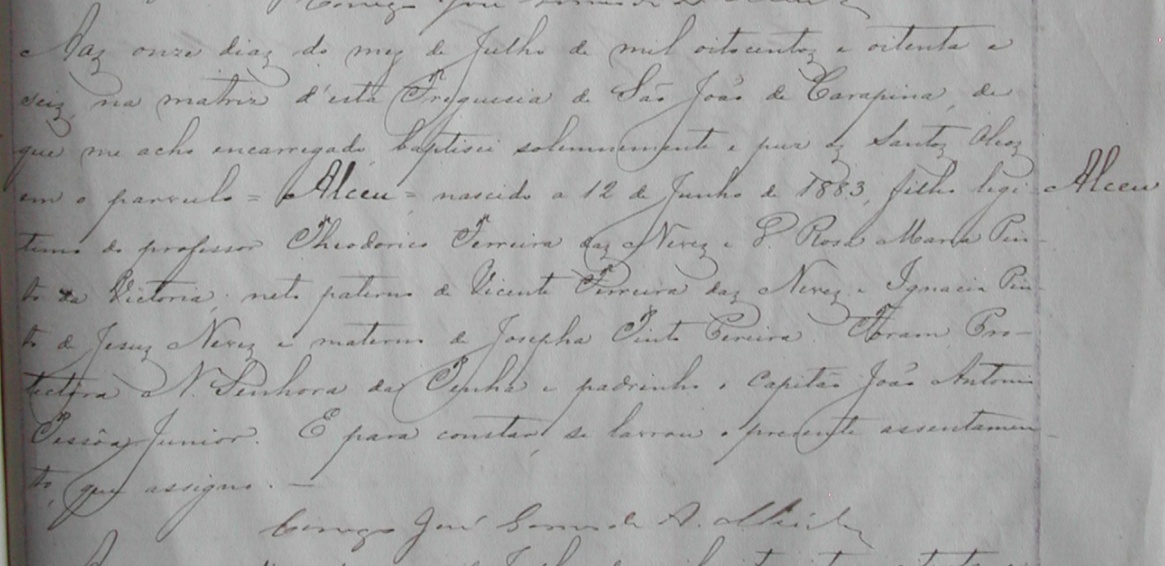 Conego José Gomes de A.
Aos onze dias do mez de Julho de mil oitocentos e oitenta e
seis, na matriz d'esta Freguesia de São João de Carapina, de
que me acho encarregado, baptisei solemnemente e puz os Santos Oleos
em o parvulo = Alceu = nascido a 12 de Junho de 1883, filho legi-
Alceu
timo do professor Theodorico Ferreira das Neves e D. Rosa Maria Pin-
to da Victoria; neto paterno de Vicente Ferreira das Neves e Ignacia Pin-
to de Jesus Neves e materno de Josepha Pinto Pereira. Foram Pro-
tectora N. Senhora da Penha e padrinho o Capitão João Antonio
Pessôa Junior. E para constar, se lavrou o presente assentamen-
to, que assigno. —
Conego José Gomes de A.